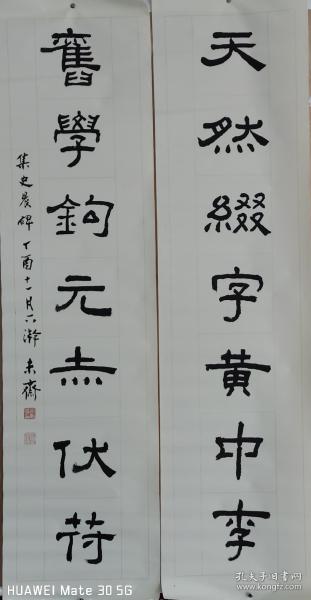 天然綴字黄中李
舊學鉤元赤伏苻
集史晨碑 丁酉十一月 未齋
HUAWEI Mate 30 5G
孔夫子旧书网
www.kongfz.com